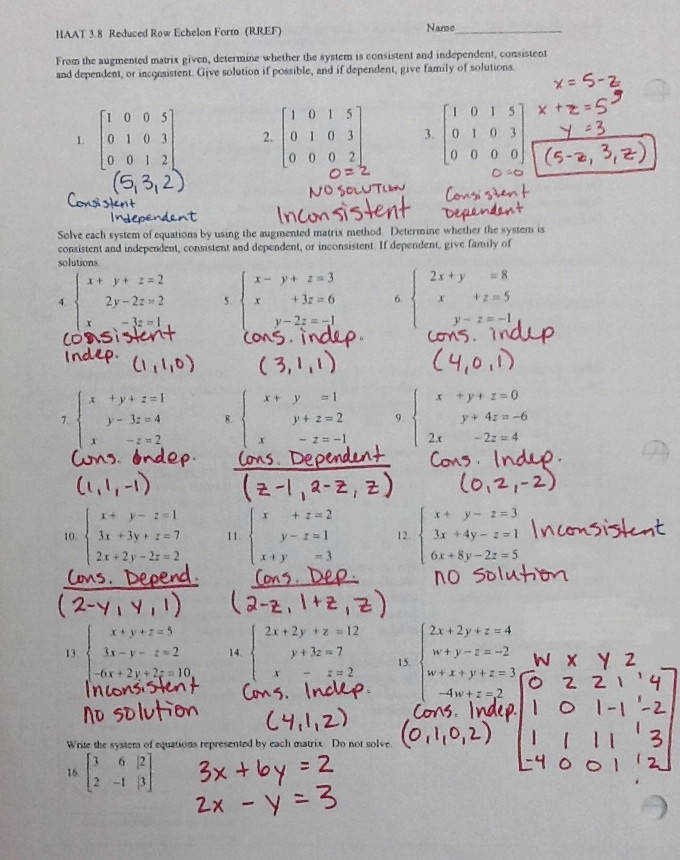 HAAT 3.8 Reduced Row Echelon Form (RREF) Name
From the augmented matrix given, determine whether the system is consistent and independent, consistent
and dependent, or inconsistent. Give solution if possible, and if dependent, give family of solutions.
x = 5-z
x + z = 5
y = 3
(5-z, 3, z)
1. [1 0 0 5]
[0 1 0 3]
[0 0 1 2]
(5,3,2)
Consistent
Independent
2. [1 0 1 5]
[0 1 0 3]
[0 0 0 2]
0=2
NO SOLUTION
Inconsistent
3. [1 0 1 5]
[0 1 0 3]
[0 0 0 0]
0=0
Consistent
Dependent
Solve each system of equations by using the augmented matrix method. Determine whether the system is
consistent and independent, consistent and dependent, or inconsistent. If dependent, give family of
solutions.
4. x + y + z = 2
2y - 2z = 2
x - 3z = 1
consistent
Indep. (1,1,0)
5. x - y + z = 3
x + 3z = 6
y - 2z = -1
cons. indep.
(3,1,1)
6. 2x + y = 8
x + z = 5
y - z = -1
cons. indep
(4,0,1)
7. x + y + z = 1
y - 3z = 4
x - z = 2
Cons. Indep.
(1,1,-1)
8. x + y = 1
y + z = 2
x - z = -1
Cons. Dependent
(z-1, 2-z, z)
9. x + y + z = 0
y + 4z = -6
2x - 2z = 4
Cons. Indep.
(0,2,-2)
10. x + y - z = 1
3x + 3y + z = 7
2x + 2y - 2z = 2
Cons. Depend.
(2-y, y, 1)
11. x + z = 2
y - z = 1
x + y = 3
Cons. Dep.
(2-z, 1+z, z)
12. x + y - z = 3
3x + 4y - z = 1
6x + 8y - 2z = 5
Inconsistent
no solution
13. x + y + z = 5
3x - y - z = 2
-6x + 2y + 2z = 10
Inconsistent
no solution
14. 2x + 2y + z = 12
y + 3z = 7
x - z = 2
Cons. Indep.
(4,1,2)
15. 2x + 2y + z = 4
w + y - z = -2
w + x + y + z = 3
-4w + z = 2
Cons. Indep.
(0,1,0,2)
W X Y Z
[0 2 2 1 ' 4]
[1 0 1 -1 ' -2]
[1 1 1 1 ' 3]
[-4 0 0 1 ' 2]
Write the system of equations represented by each matrix. Do not solve.
16. [3 6 |2]
[2 -1 |3]
3x + 6y = 2
2x - y = 3